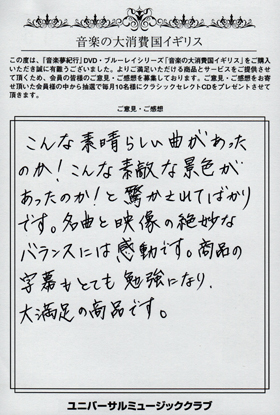 音楽の大消費国イギリス
この度は、『音楽夢紀行』DVD・ブルーレイシリーズ『音楽の大消費国イギリス』をご購入
いただき誠に有難うございました。よりご満足いただける商品とサービスをご提供させ
て頂くため、会員の皆様のご意見・ご感想を募集しております。ご意見・ご感想をお寄
せ頂いた会員様の中から抽選で毎月10名様にクラシックセレクトCDをプレゼントさせて
頂きます。
ご意見・ご感想
こんな素晴らしい曲があった
のか!こんな素敵な景色が
あったのか!と驚かされてばかり
です。名曲と映像の絶妙な
バランスには感動です。商品の
字幕もとても勉強になり、
大満足の商品です。
ユニバーサルミュージッククラブ